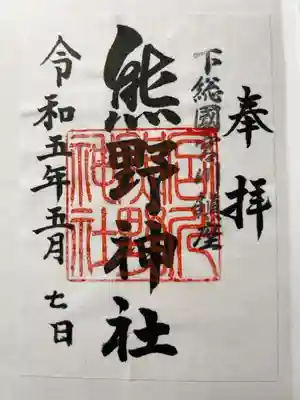 奉拝
下総國宗川鎮座
熊野神社
令和五年五月七日